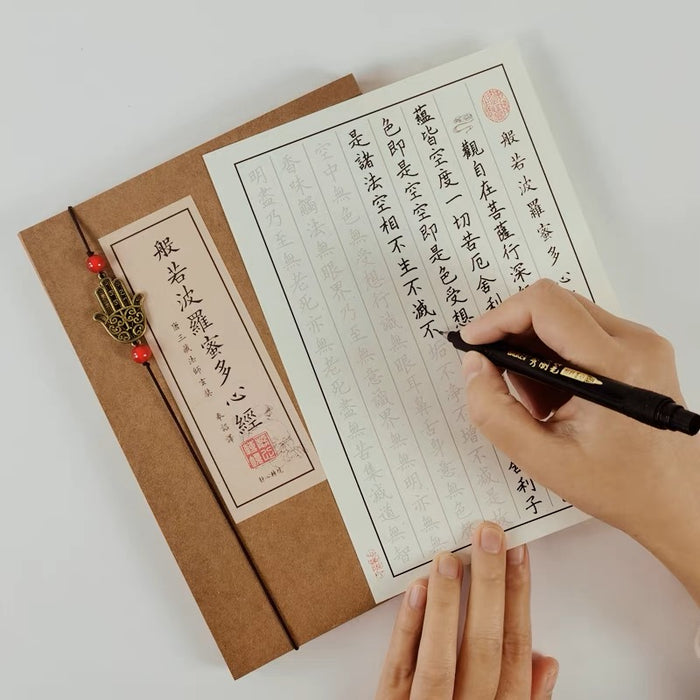 般若波羅蜜多心
觀自在菩薩行深
蘊皆空度一切苦厄舍利
色即是空空即是色受想
舍利子
是諸法空相不生不滅不垢不淨不增不減是故
空中無色無受想行識無眼耳鼻舌身意無色
香味觸法無眼界乃至無意識界無無明亦無無
明盡乃至無老死亦無老死盡無苦集滅道無智
般若波羅蜜多心經
唐三藏法師玄奘 奉詔譯